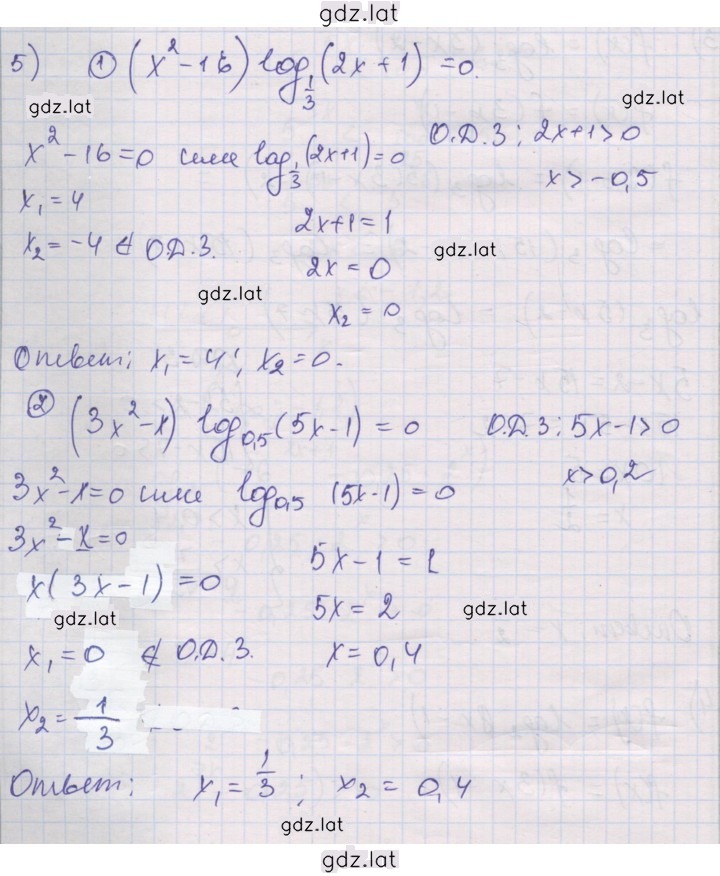 gdz.lat
5) ① (x²-16) log_{1/3} (2x+1) = 0.
gdz.lat
gdz.lat
x²-16=0 или log_{1/3} (2x+1)=0
О.Д.З: 2x+1>0
x>-0,5
x₁=4
2x+1=1
x₂=-4 ∉ О.Д.З.
2x=0
gdz.lat
gdz.lat
x₂=0
Ответ: x₁=4; x₂=0.
② (3x²-x) log_{0,5} (5x-1) = 0
О.Д.З: 5x-1>0
x>0,2
3x²-x=0 или log_{0,5} (5x-1)=0
3x²-x=0
5x-1=1
x(3x-1)=0
5x=2
gdz.lat
gdz.lat
x₁=0 ∉ О.Д.З.
x=0,4
x₂=1/3
Ответ: x₁=1/3; x₂=0,4
gdz.lat
gdz.lat